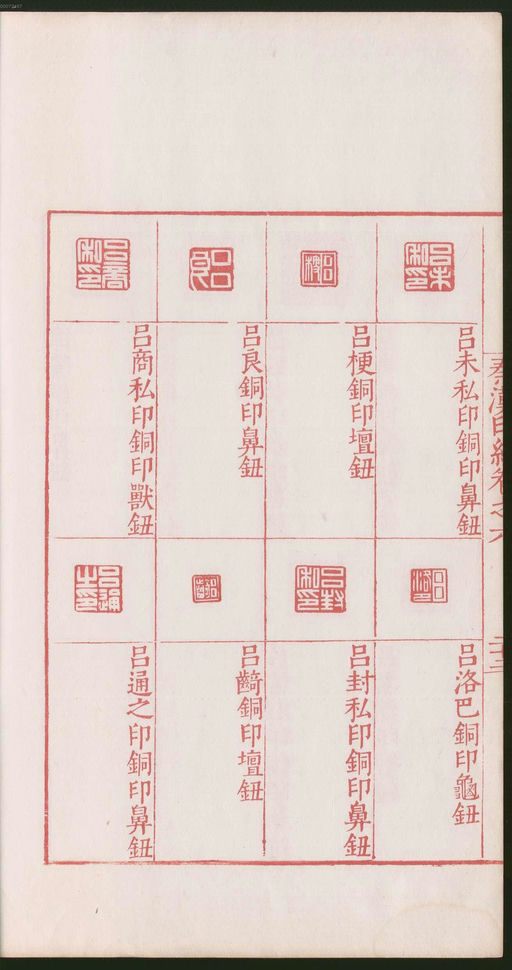 呂未私印銅印鼻鈕
呂梗銅印壇鈕
呂良銅印鼻鈕
呂商私印銅印獸鈕
呂洛巴銅印龜鈕
呂封私印銅印鼻鈕
呂齮銅印壇鈕
呂通之印銅印鼻鈕